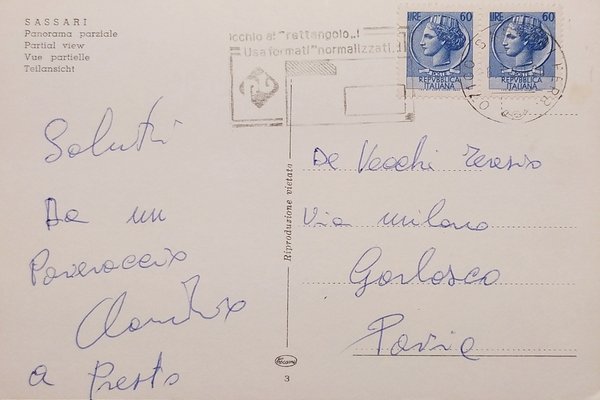 SASSARI
Panorama parziale
Partial view
Vue partielle
Teilansicht
occhio al "rettangolo..!
Usa formati "normalizzati..!
LIRE 60
REPVBBLICA
ITALIANA
LIRE 60
POSTE
REPVBBLICA
ITALIANA
Saluti
Da un
a Presto
Riproduzione vietata
3
De Vecchi
Via Milano
Garlasco
Pavia